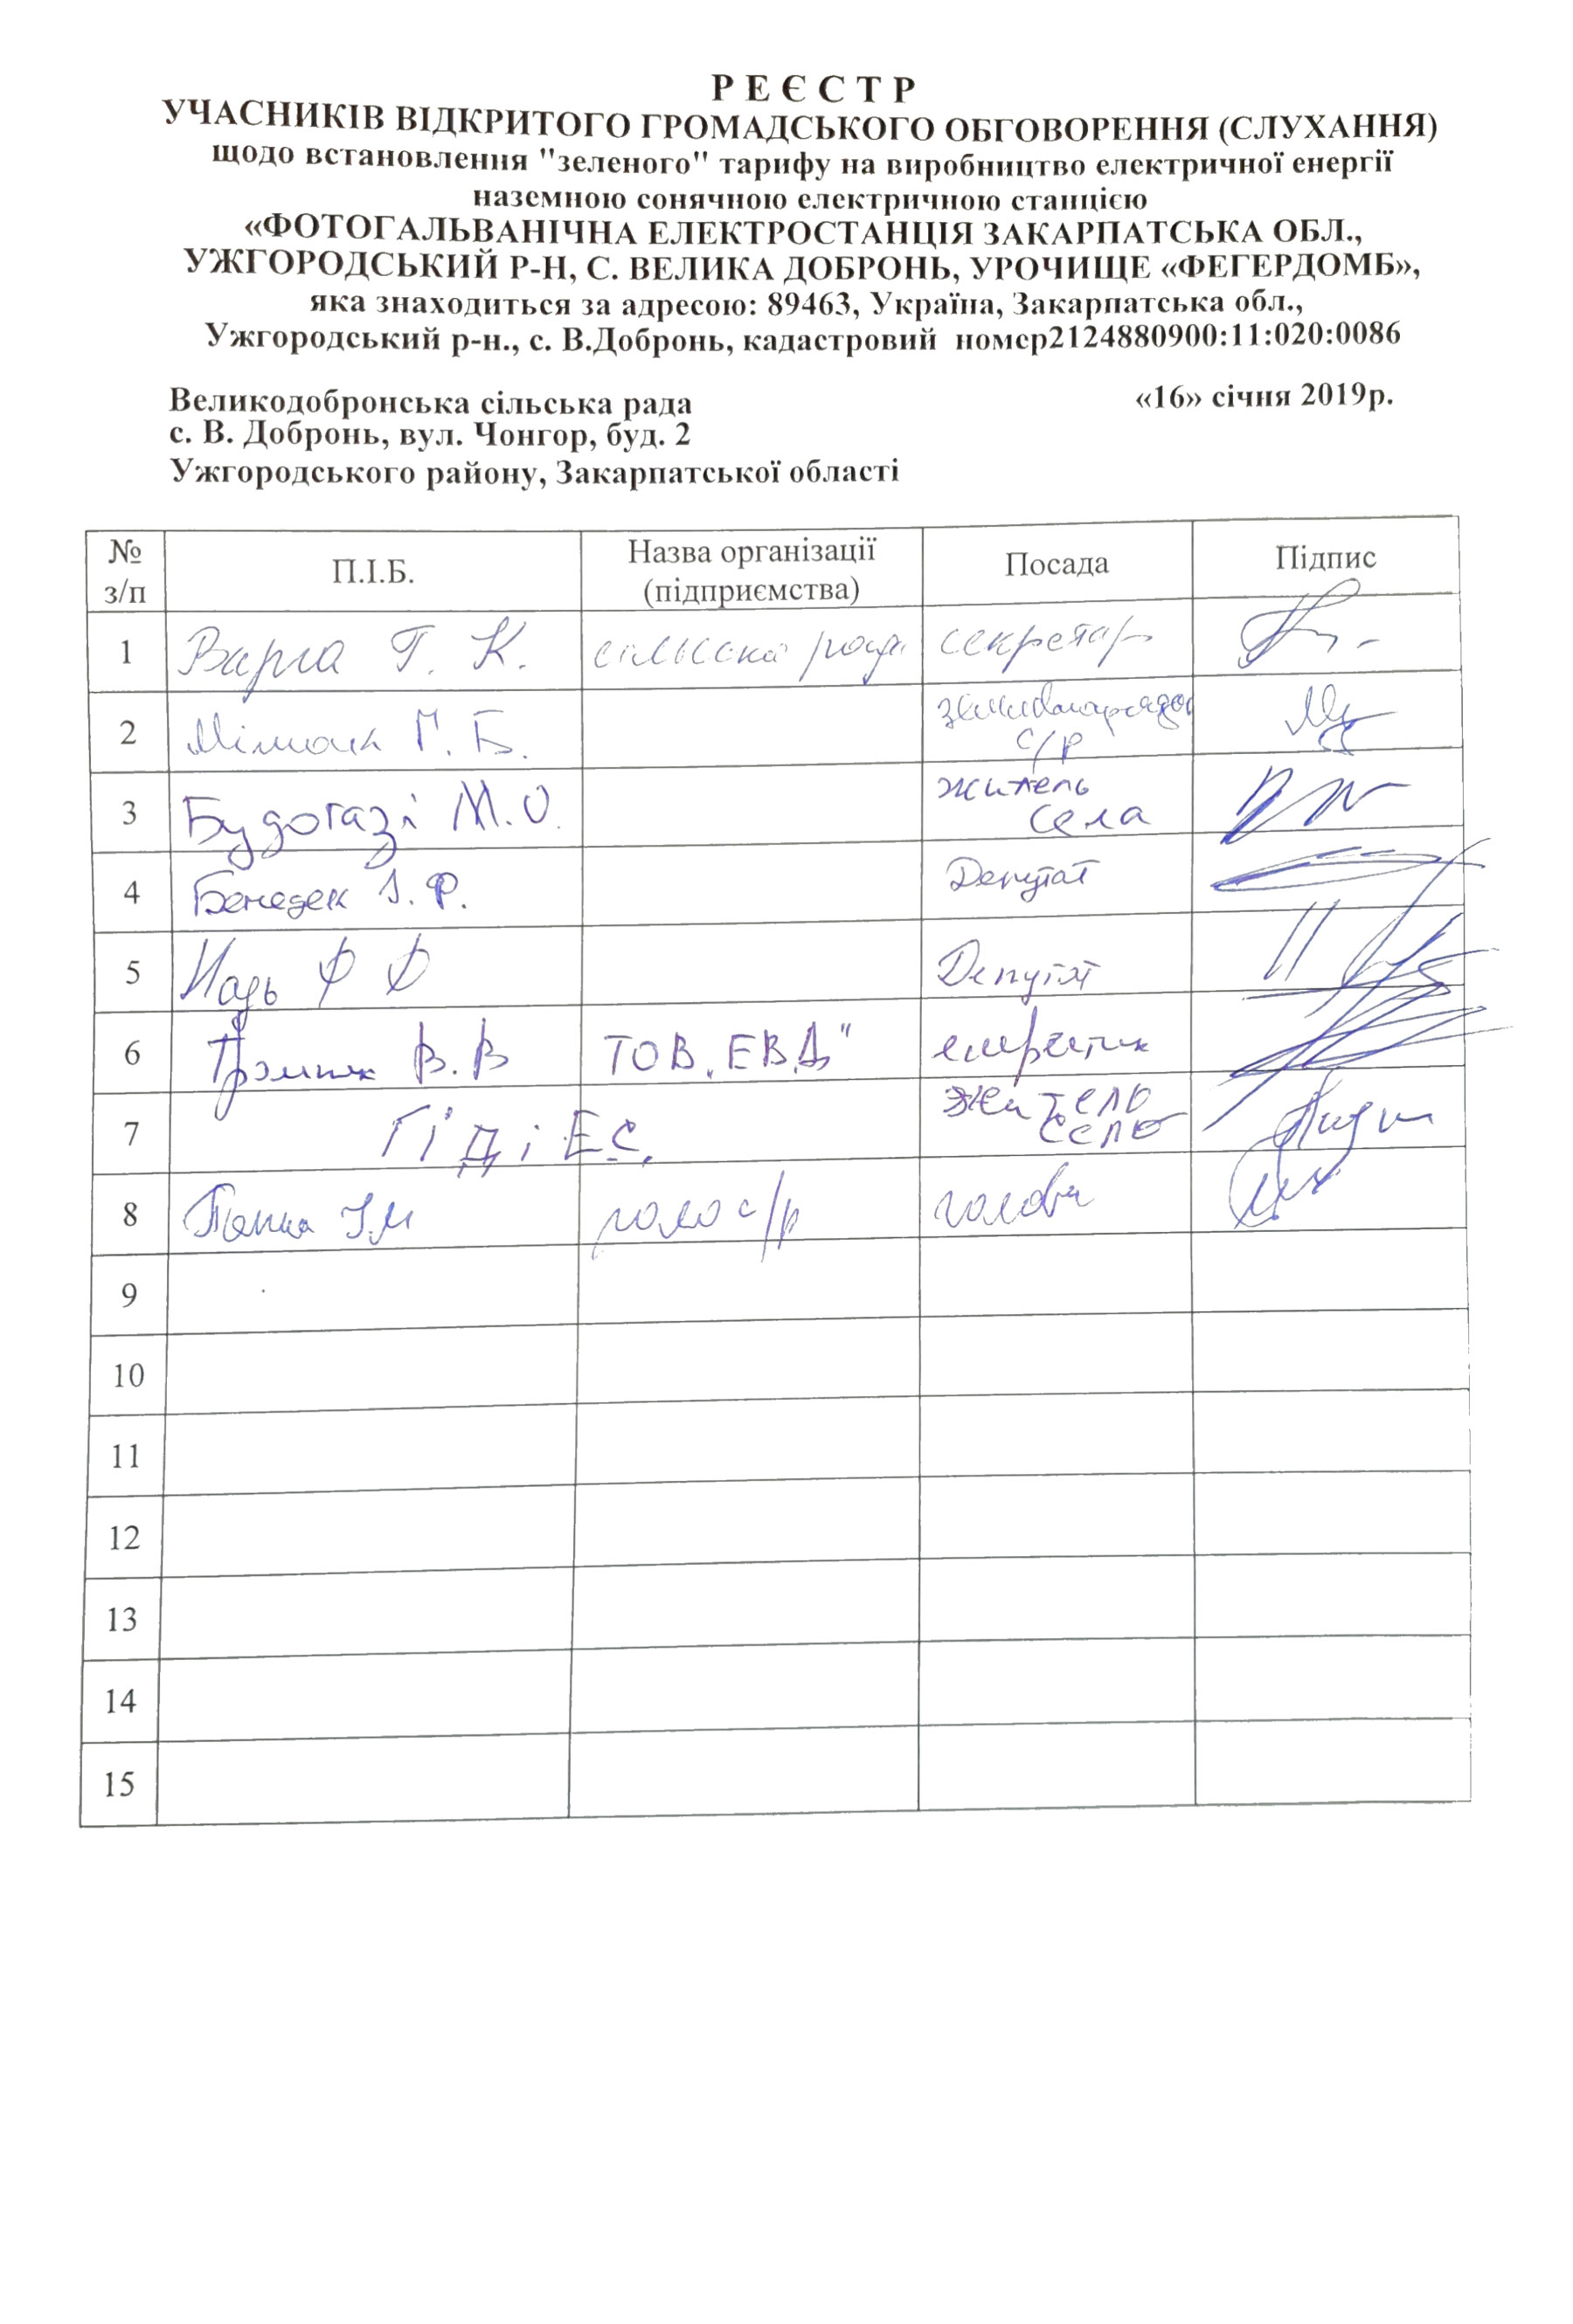 Р Е Є С Т Р
УЧАСНИКІВ ВІДКРИТОГО ГРОМАДСЬКОГО ОБГОВОРЕННЯ (СЛУХАННЯ)
щодо встановлення "зеленого" тарифу на виробництво електричної енергії
наземною сонячною електричною станцією
«ФОТОГАЛЬВАНІЧНА ЕЛЕКТРОСТАНЦІЯ ЗАКАРПАТСЬКА ОБЛ.,
УЖГОРОДСЬКИЙ Р-Н, С. ВЕЛИКА ДОБРОНЬ, УРОЧИЩЕ «ФЕГЕРДОМБ»,
яка знаходиться за адресою: 89463, Україна, Закарпатська обл.,
Ужгородський р-н., с. В.Добронь, кадастровий номер2124880900:11:020:0086
Великодобронська сільська рада «16» січня 2019р.
с. В. Добронь, вул. Чонгор, буд. 2
Ужгородського району, Закарпатської області
№ з/п П.І.Б. Назва організації (підприємства) Посада Підпис
1 Варга Г. К. сільська рада секретар
2 Г. Б. с/р
3 Будогазі М.О. житель села
4 Бенедек І. Ф. Депутат
5 Надь Ф Ф Депутат
6 В. В ТОВ „ЕВД" енергетик
7 Гіді Е.С. житель
8 І.М с/р голова
9
10
11
12
13
14
15